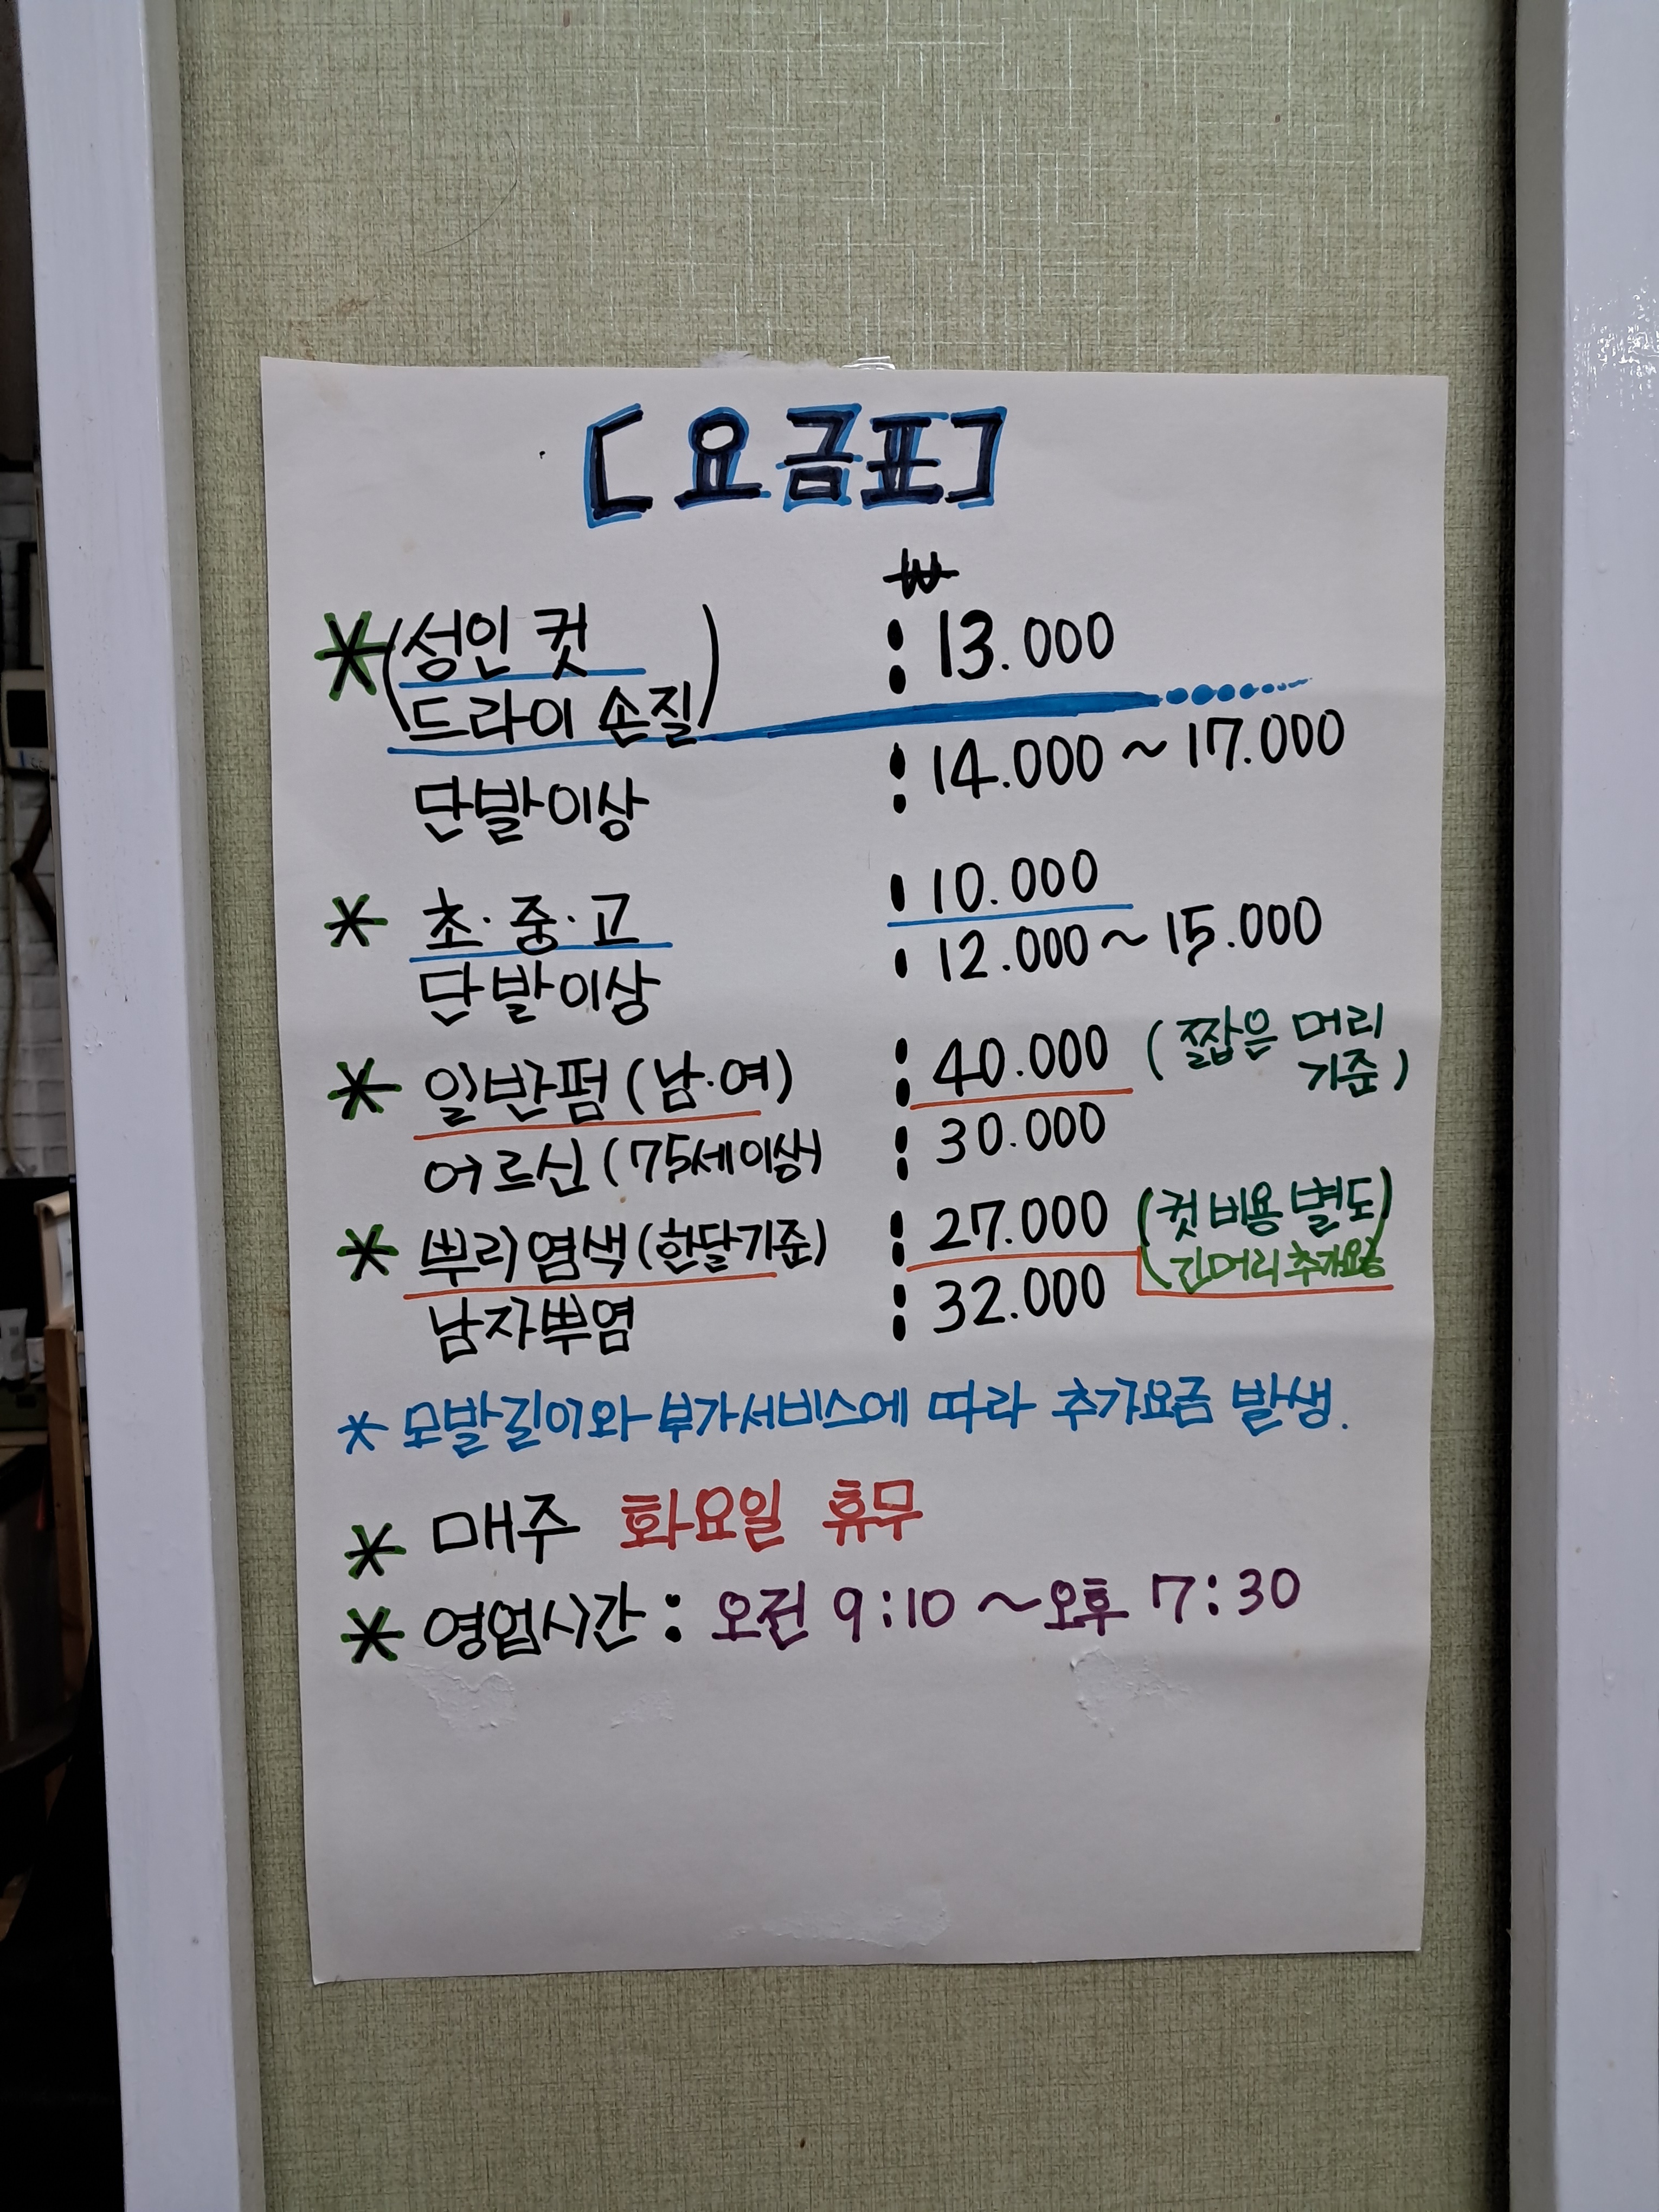 [요금표]
₩
* (성인 컷 : 13.000
드라이 손질)
단발이상 : 14.000 ~ 17.000
* 초·중·고 : 10.000
단발이상 : 12.000 ~ 15.000
* 일반펌 (남·여) : 40.000 (짧은 머리
기준)
어르신 (75세이상) : 30.000
* 뿌리염색 (한달기준) : 27.000 (컷 비용 별도)
(긴머리 추가요금
남자뿌염 : 32.000
* 모발길이와 부가서비스에 따라 추가요금 발생.
* 매주 화요일 휴무
* 영업시간 : 오전 9:10 ~ 오후 7:30